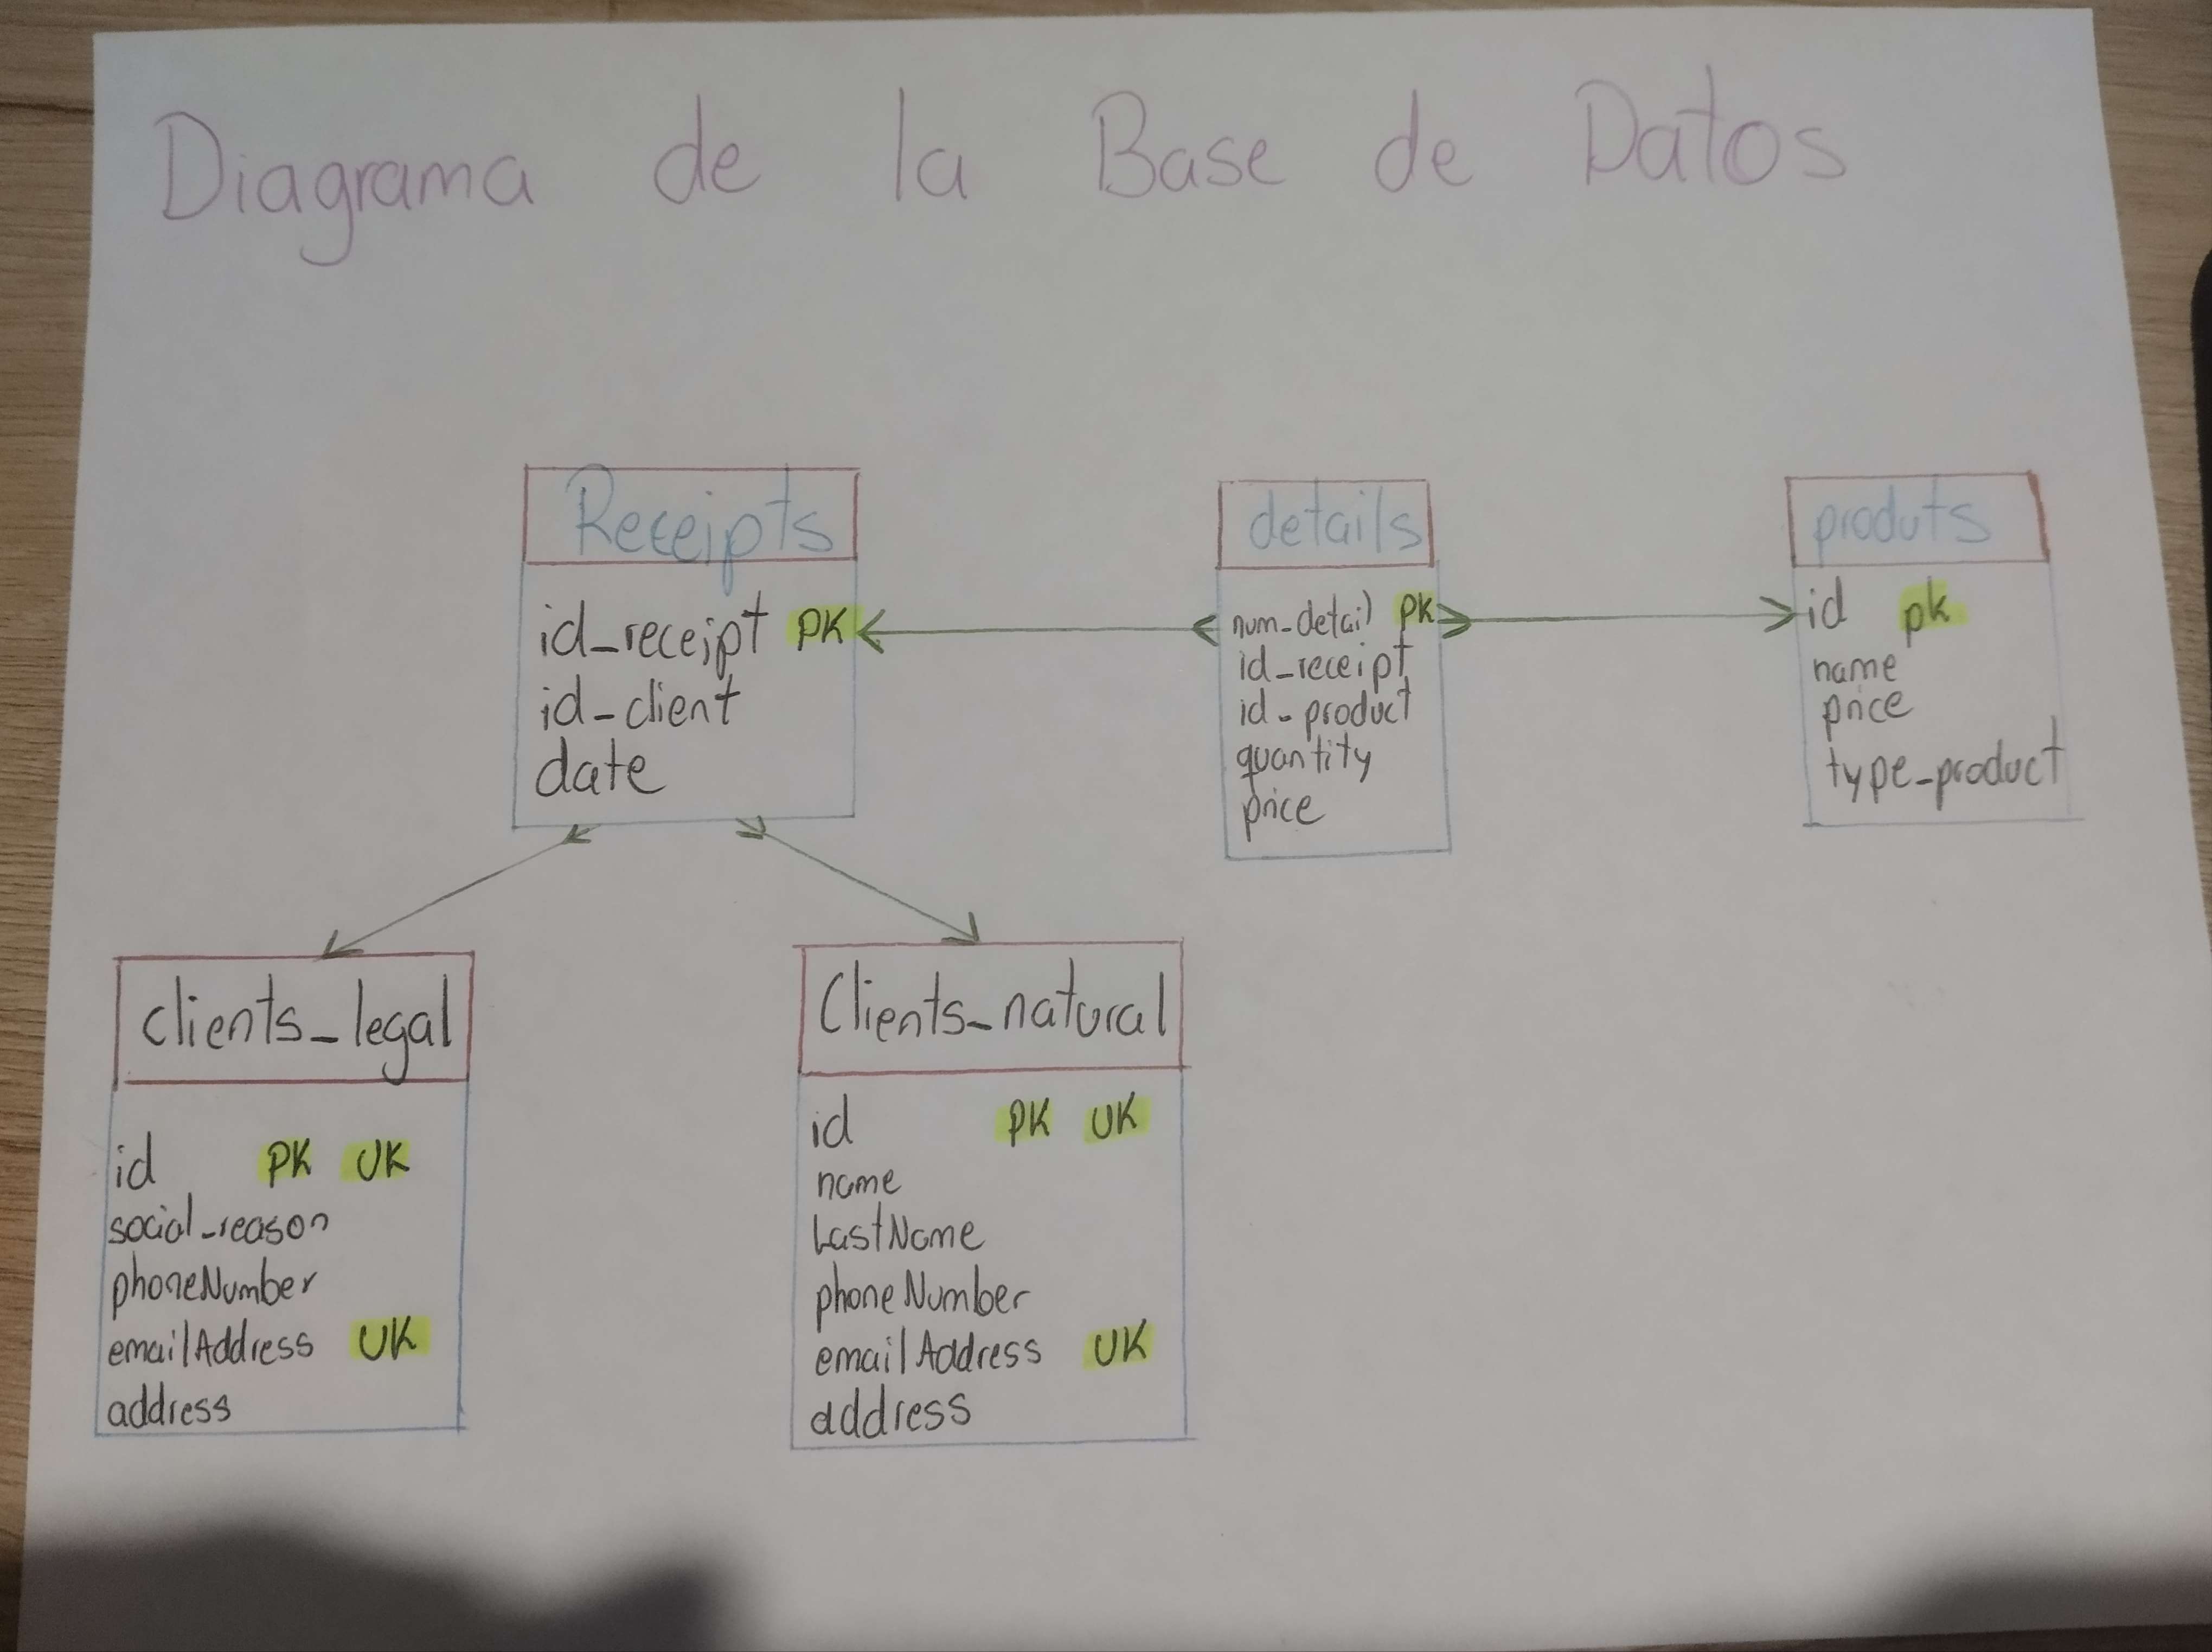 Diagrama de la Base de Datos
Receipts
id_receipt PK
id_client
date
details
num_detail PK
id_receipt
id_product
quantity
price
produts
id pk
name
price
type_product
clients_legal
id PK UK
social_reason
phoneNumber
emailAddress UK
address
Clients_natural
id PK UK
name
LastName
phoneNumber
emailAddress UK
address